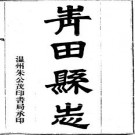 靑田縣志
溫州朱公茂印書局承印